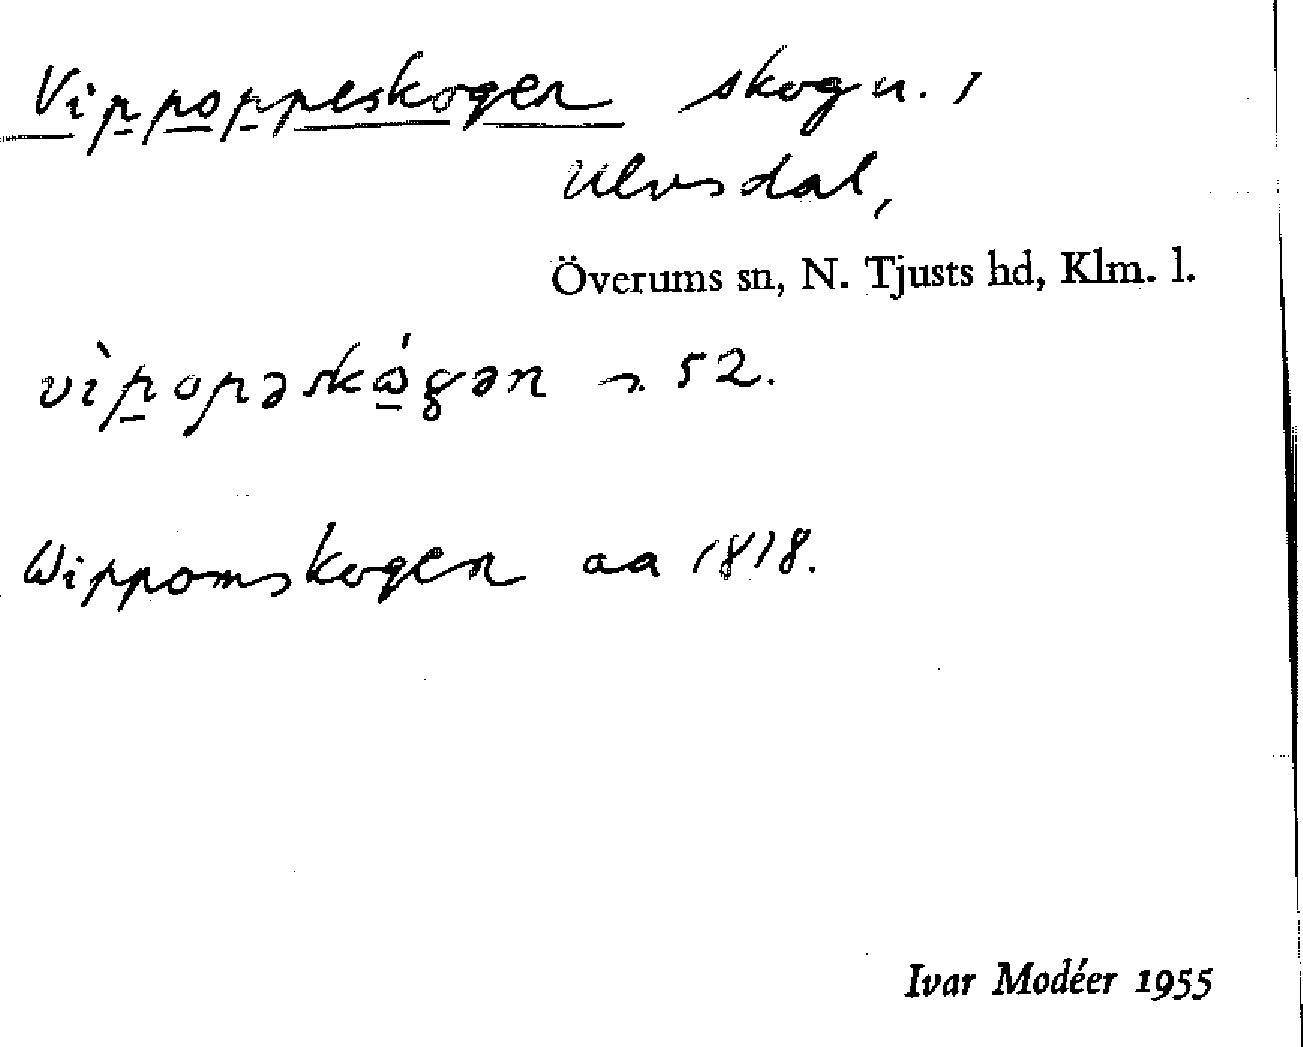 Vippoppeskogen skog n. 1
Ulvsdal,
Överums sn, N. Tjusts hd, Klm. l.
vìpopəskɷ́gən s. 52.
Wippomskogen aa 1818.
Ivar Modéer 1955